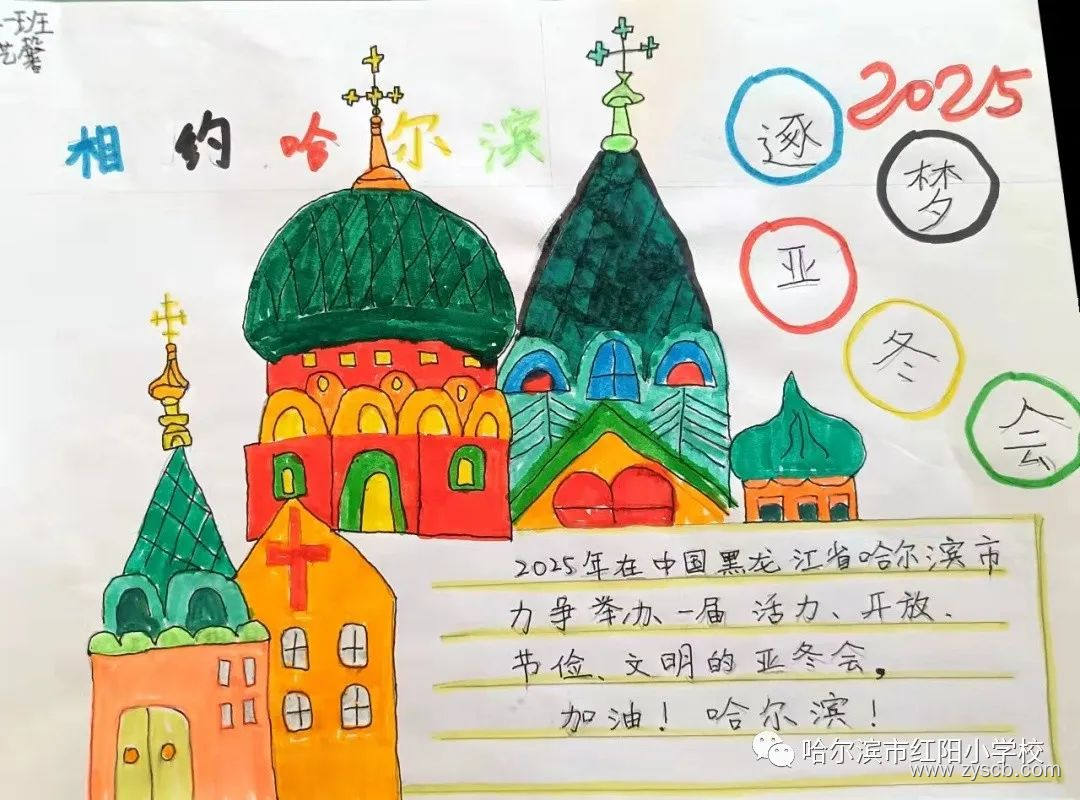 一班
艺馨
相约哈尔滨
2025
逐梦亚冬会
2025年在中国黑龙江省哈尔滨市
力争举办一届 活力、开放、
节俭、文明的亚冬会,
加油！哈尔滨！
哈尔滨市红阳小学校
www.zyscb.com